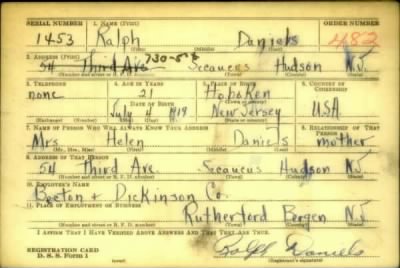 SERIAL NUMBER 1. NAME (Print) ORDER NUMBER
1453 Ralph Daniels 482
(First) (Middle) (Last)
2. ADDRESS (Print) 730-5th
54 Third Ave Secaucus Hudson N.J.
(Number and street or R. F. D. number) (Town) (County) (State)
3. TELEPHONE 4. AGE IN YEARS 5. PLACE OF BIRTH 6. COUNTRY OF CITIZENSHIP
none 21 Hoboken
DATE OF BIRTH (Town or county)
July 4 1919 New Jersey USA
(Mo.) (Day) (Yr.) (State or country)
7. NAME OF PERSON WHO WILL ALWAYS KNOW YOUR ADDRESS 8. RELATIONSHIP OF THAT PERSON
Mrs Helen Daniels mother
(Mr., Mrs., Miss) (First) (Middle) (Last)
9. ADDRESS OF THAT PERSON
54 Third Ave. Secaucus Hudson N.J.
(Number and street or R. F. D. number) (Town) (County) (State)
10. EMPLOYER'S NAME
Becton + Dickinson Co.
11. PLACE OF EMPLOYMENT OR BUSINESS
Rutherford Bergen N.J.
(Number and street or R. F. D. number) (Town) (County) (State)
I AFFIRM THAT I HAVE VERIFIED ABOVE ANSWERS AND THAT THEY ARE TRUE.
REGISTRATION CARD
D. S. S. Form 1 Ralph Daniels
(Registrant's signature)